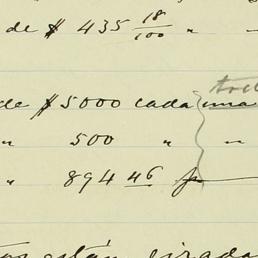 de $ 435 18/100 " "
de $5000 cada una
" 500 " "
" 894 46
están girada